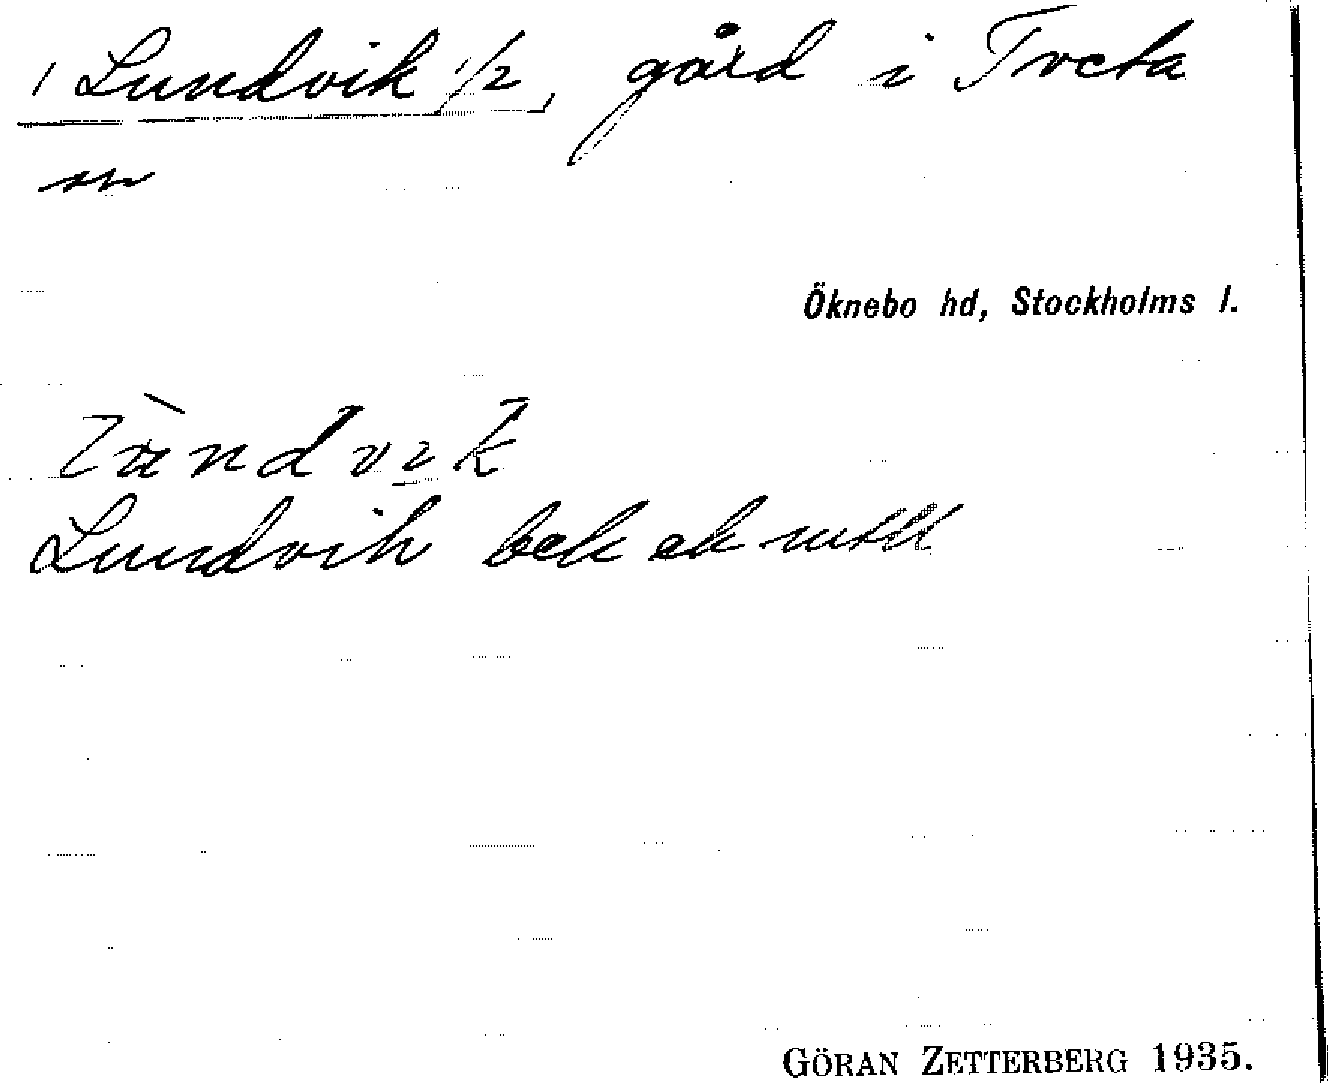 Lundvik 1/2, gård i Tveta
sn
Öknebo hd, Stockholms l.
Lùndvik
Lundvik bek ek mtll
GÖRAN ZETTERBERG 1935.